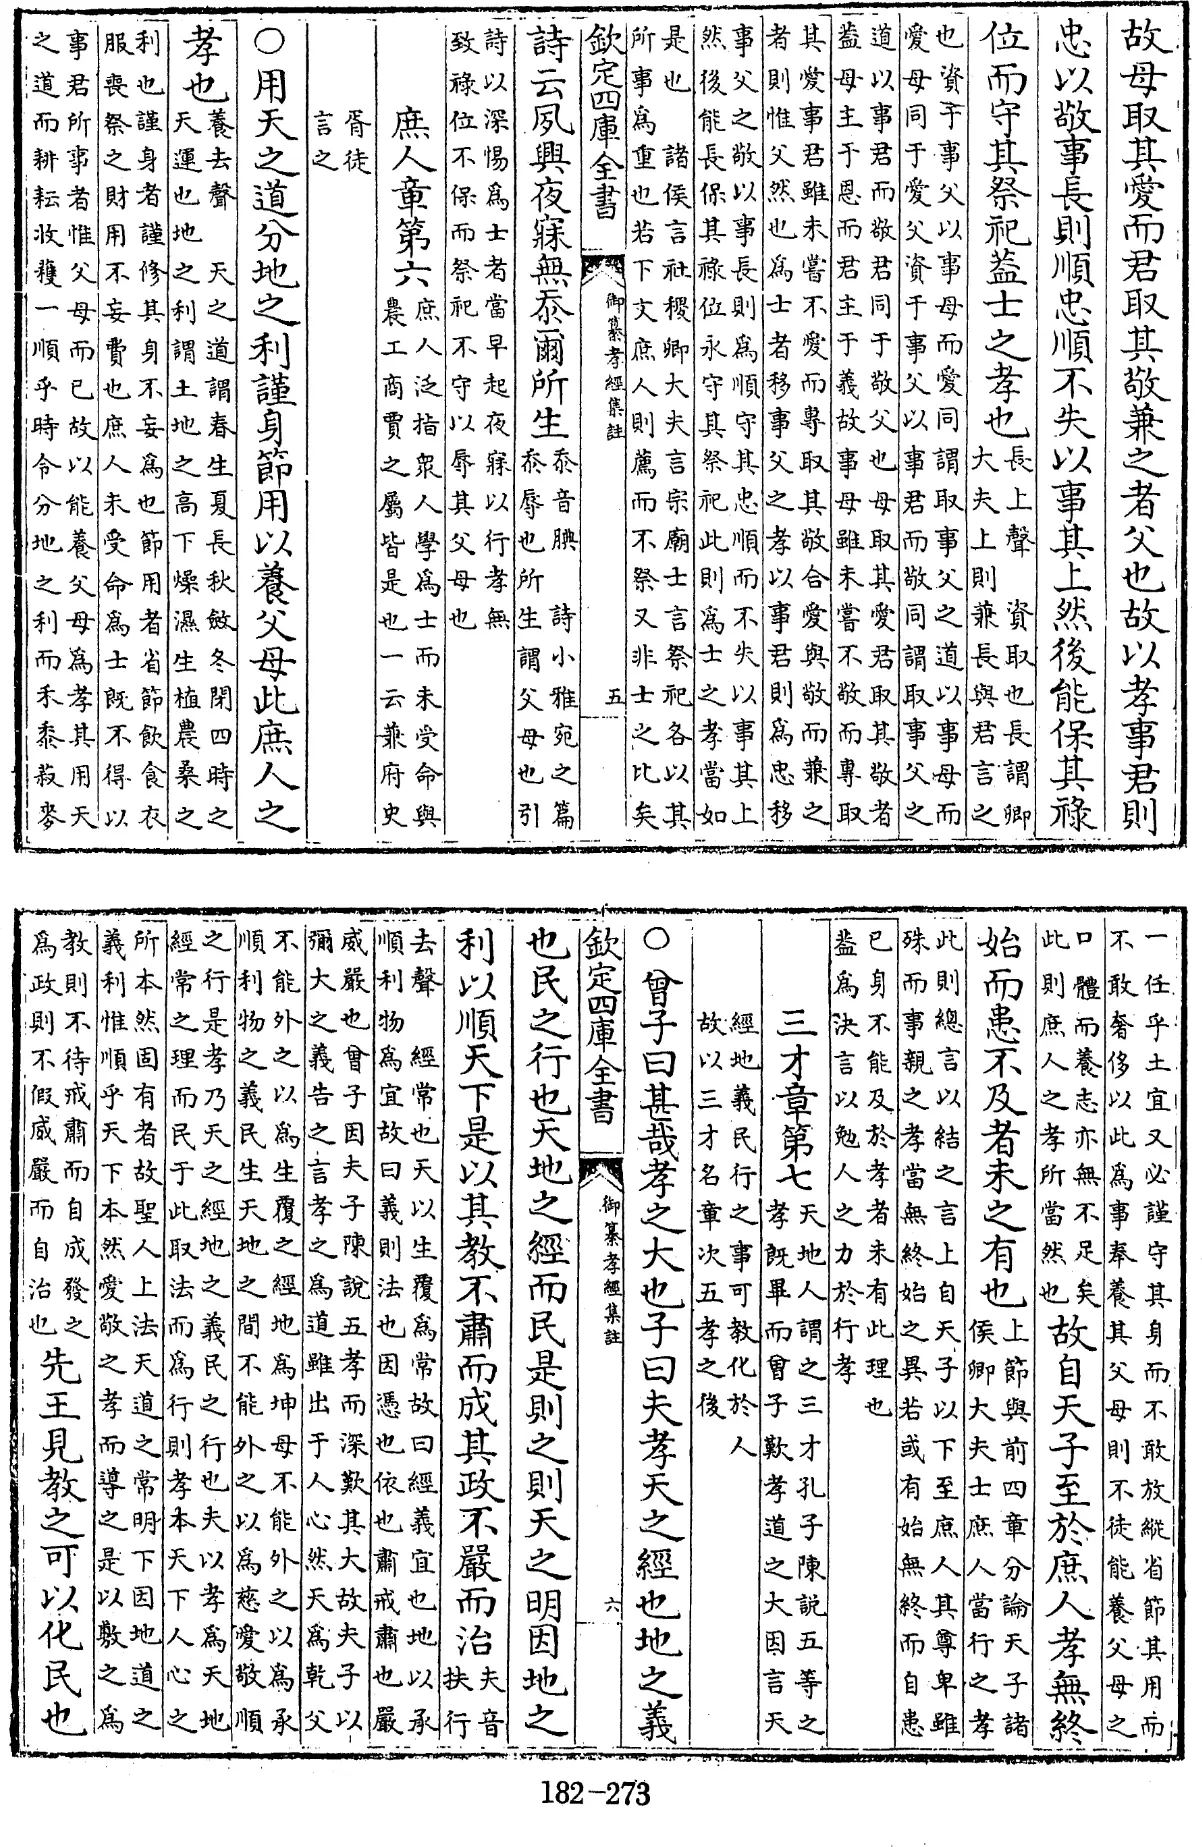 故母取其愛而君取其敬兼之者父也故以孝事君則
忠以敬事長則順忠順不失以事其上然後能保其祿
位而守其祭祀葢士之孝也長上聲　資取也長謂卿
大夫上則兼長與君言之
也資于事父以事母而愛同謂取事父之道以事母而
愛母同于愛父資于事父以事君而敬同謂取事父之
道以事君而敬君同于敬父也母取其愛君取其敬者
葢母主于恩而君主于義故事母雖未嘗不敬而專取
其愛事君雖未嘗不愛而專取其敬合愛與敬而兼之
者則惟父然也為士者移事父之孝以事君則為忠移
事父之敬以事長則為順守其忠順而不失以事其上
然後能長保其祿位永守其祭祀此則為士之孝當如
是也　諸侯言社稷卿大夫言宗廟士言祭祀各以其
所事為重也若下文庶人則薦而不祭又非士之比矣
欽定四庫全書　御纂孝經集註　五
詩云夙興夜寐無忝爾所生忝音腆　詩小雅宛之篇
忝辱也所生謂父母也引
詩以深惕為士者當早起夜寐以行孝無
致祿位不保而祭祀不守以辱其父母也
庶人章第六庶人泛指衆人學為士而未受命與
農工商賈之屬皆是也一云兼府史
胥徒
言之
○用天之道分地之利謹身節用以養父母此庶人之
孝也養去聲　天之道謂春生夏長秋斂冬閉四時之
天運也地之利謂土地之高下燥濕生植農桑之
利也謹身者謹修其身不妄為也節用者省節飲食衣
服喪祭之財用不妄費也庶人未受命為士既不得以
事君所事者惟父母而已故以能養父母為孝其用天
之道而耕耘收穫一順乎時令分地之利而禾黍菽麥
一任乎土宜又必謹守其身而不敢放縱省節其用而
不敢奢侈以此為事奉養其父母則不徒能養父母之
口體而養志亦無不足矣
此則庶人之孝所當然也故自天子至於庶人孝無終
始而患不及者未之有也上節與前四章分論天子諸
侯卿大夫士庶人當行之孝
此則總言以結之言上自天子以下至庶人其尊卑雖
殊而事親之孝當無終始之異若或有始無終而自患
已身不能及於孝者未有此理也
葢為決言以勉人之力於行孝
三才章第七天地人謂之三才孔子陳說五等之
孝既畢而曾子歎孝道之大因言天
經地義民行之事可教化於人
故以三才名章次五孝之後
○曾子曰甚哉孝之大也子曰夫孝天之經也地之義
欽定四庫全書　御纂孝經集註　六
也民之行也天地之經而民是則之則天之明因地之
利以順天下是以其教不肅而成其政不嚴而治夫音
扶行
去聲　經常也天以生覆為常故曰經義宜也地以承
順利物為宜故曰義則法也因憑也依也肅戒肅也嚴
威嚴也曾子因夫子陳說五孝而深歎其大故夫子以
彌大之義告之言孝之為道雖出于人心然天為乾父
不能外之以為生覆之經地為坤母不能外之以為承
順利物之義民生天地之間不能外之以為慈愛敬順
之行是孝乃天之經地之義民之行也夫以孝為天地
經常之理而民于此取法而為行則孝本天下人心之
所本然固有者故聖人上法天道之常明下因地道之
義利惟順乎天下本然愛敬之孝而導之是以敷之為
教則不待戒肅而自成發之
為政則不假威嚴而自治也先王見教之可以化民也
182-273